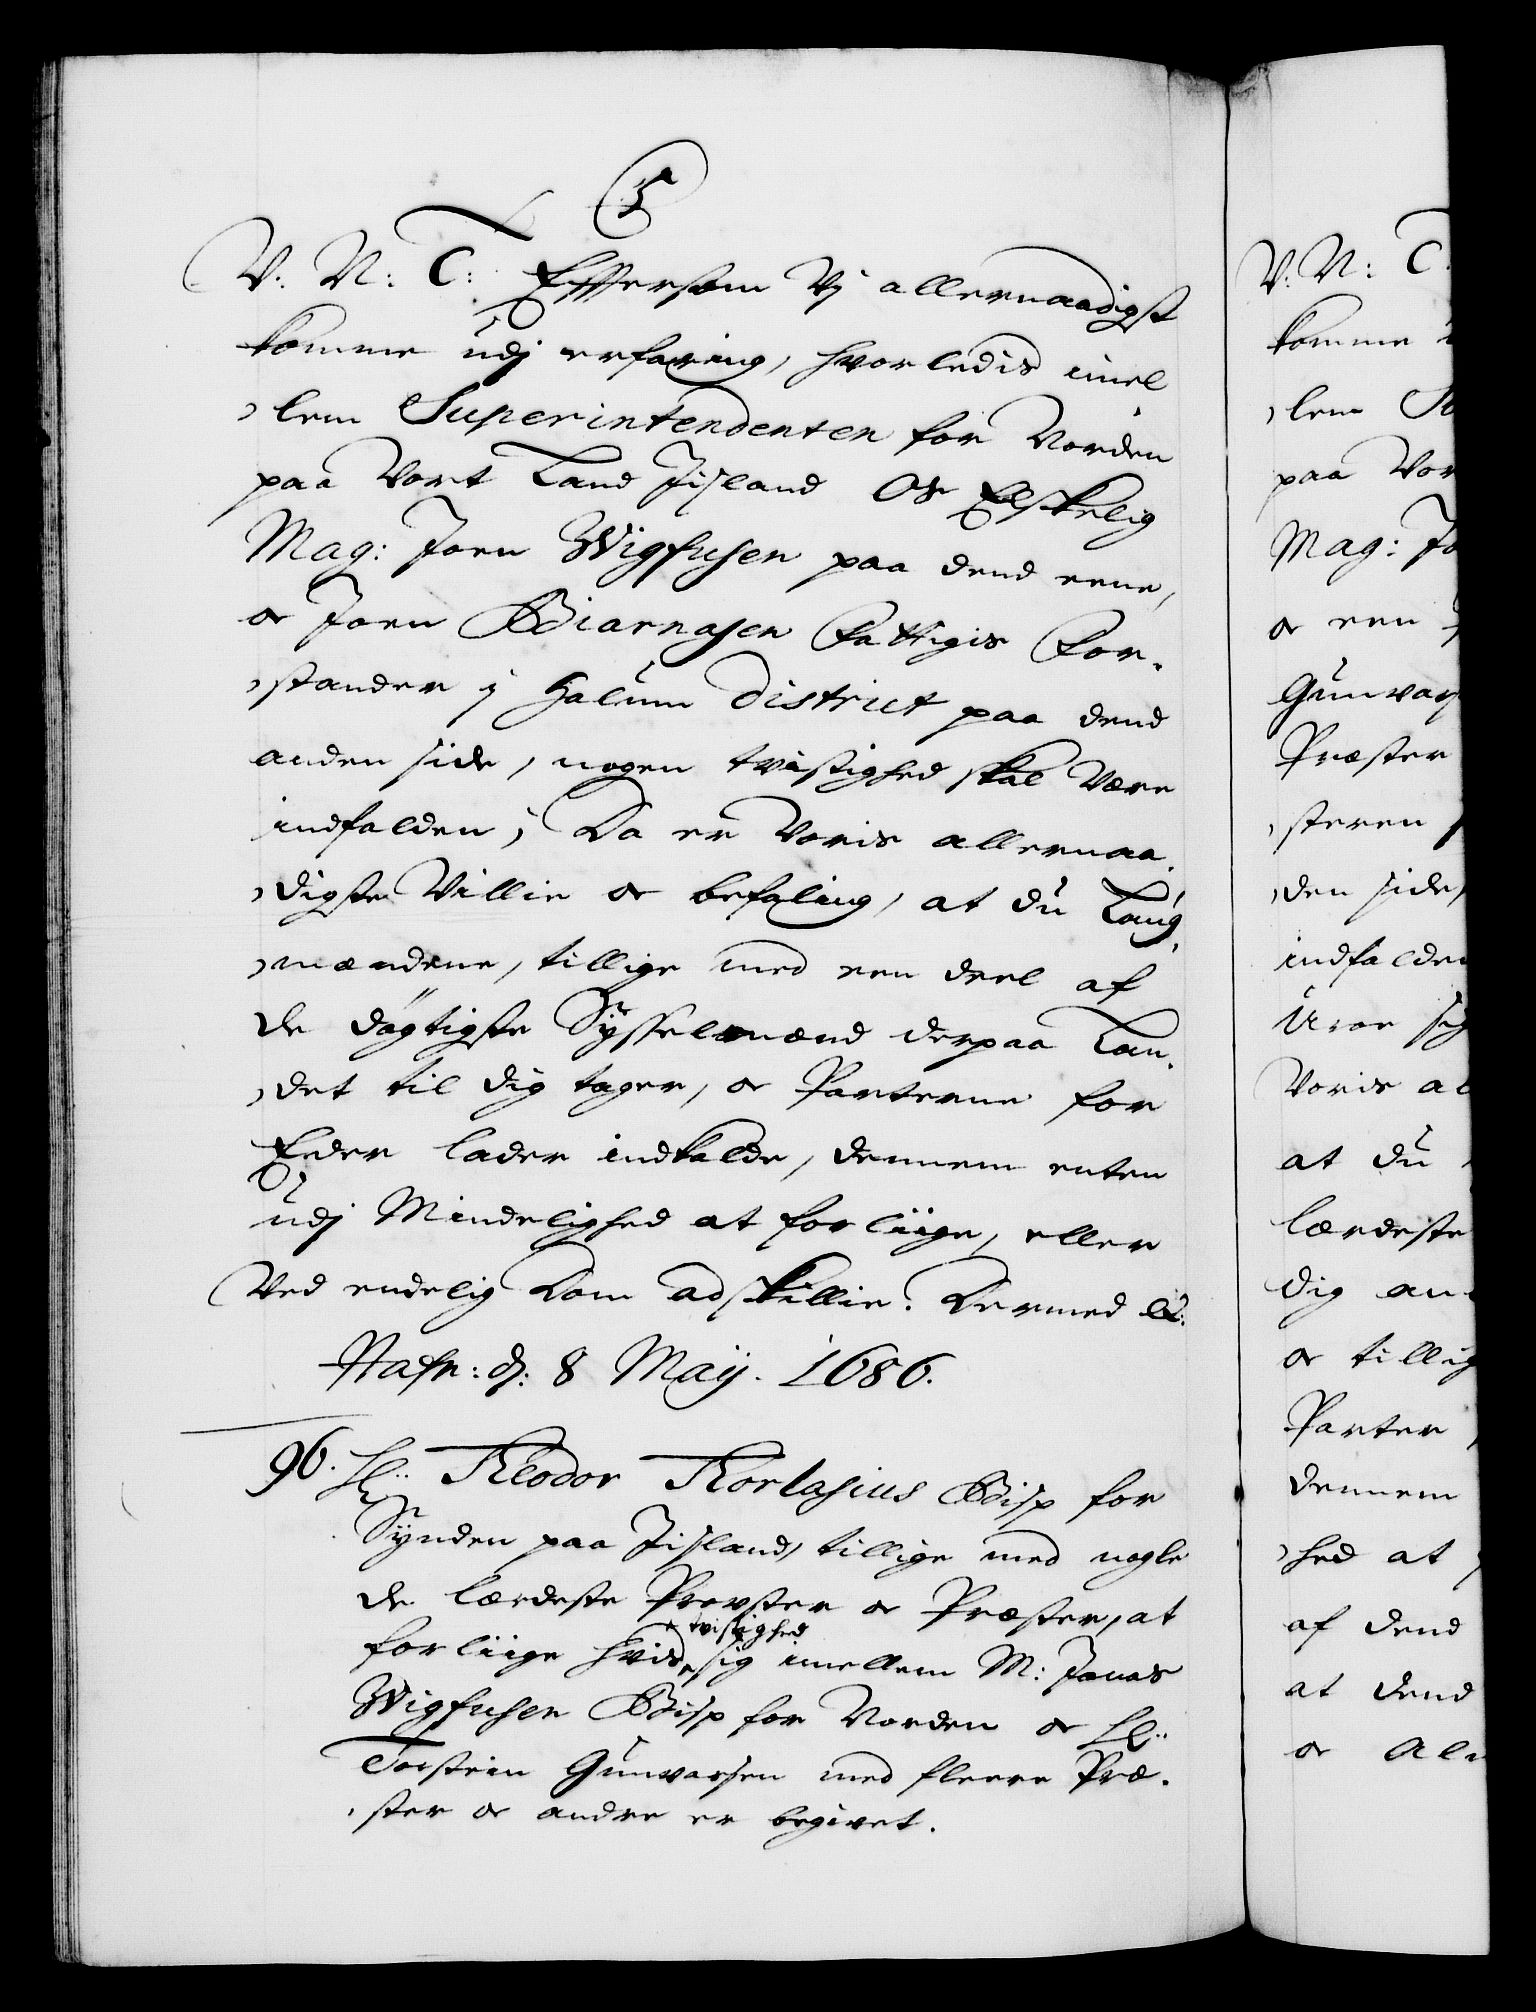 V. N: C: Effersom Vj allernaadigst
komme udj erfaring, hvorledis imel
lem Superintendenten for Norden
paa Vort Land Jisland Os Elskelig
Mag: Joen Wigfusen paa dend eene,
oc Joen Biarnasen Fattigis For-
stander j Halum District paa dend
anden side, nogen tvistighed skal være
indfalden; Da er Voris allernaa-
digste Villie oc befaling, at du Laug
mændene, tillige med een deel af
de døgtigste Sysselmænd derpaa Lan-
det til dig tager, oc Parterne for
Eder lader indkalde, dennem enten
udj Mindelighed at forliige, eller
Ved endelig Dom adskillie. Dermed &c:
Hafn: d: 8 Maij. 1686.
96. Hr: Theodor Thorlasius Bisp for
Synden paa Jisland, tillige med nogle
de lærdeste Provster oc Præster, at
tvistighed
forliige hvis sig imellem M: Jonas
Wigfusen Bisp for Norden oc Hr:
Torstein Gunvarsen med fleere Præ-
ster oc andre er begivet.
V. N: C.
komme
lem
paa Vor
Mag: Jo
oc een
Gunvars
Præster
steren
den side,
indfalden
sig
Voris al
at du
lærdeste
dig an
oc tillig
Parter
dennem
hed at
af dend
at dend
oc